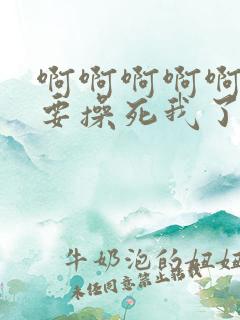 啊啊啊啊啊
要操死我了
牛奶泡的妞妞
未经同意禁止转载